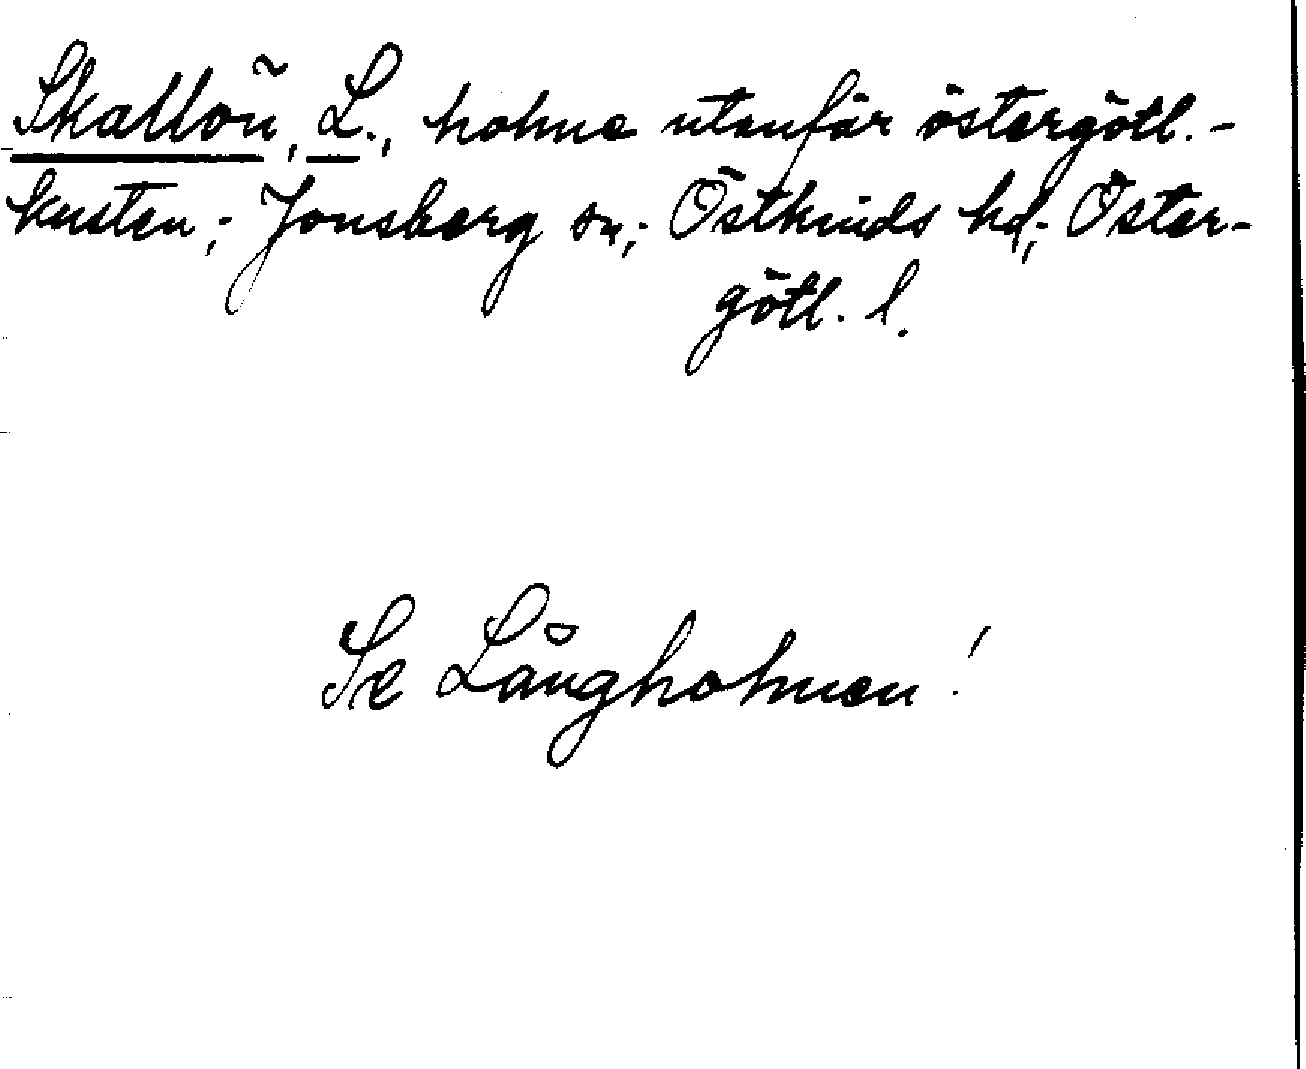 Skallöñ, L., holme utanför östergötl.-
kusten; Jonsberg sn; Östkinds hd; Öster-
götl. l.
Se Långholmen!